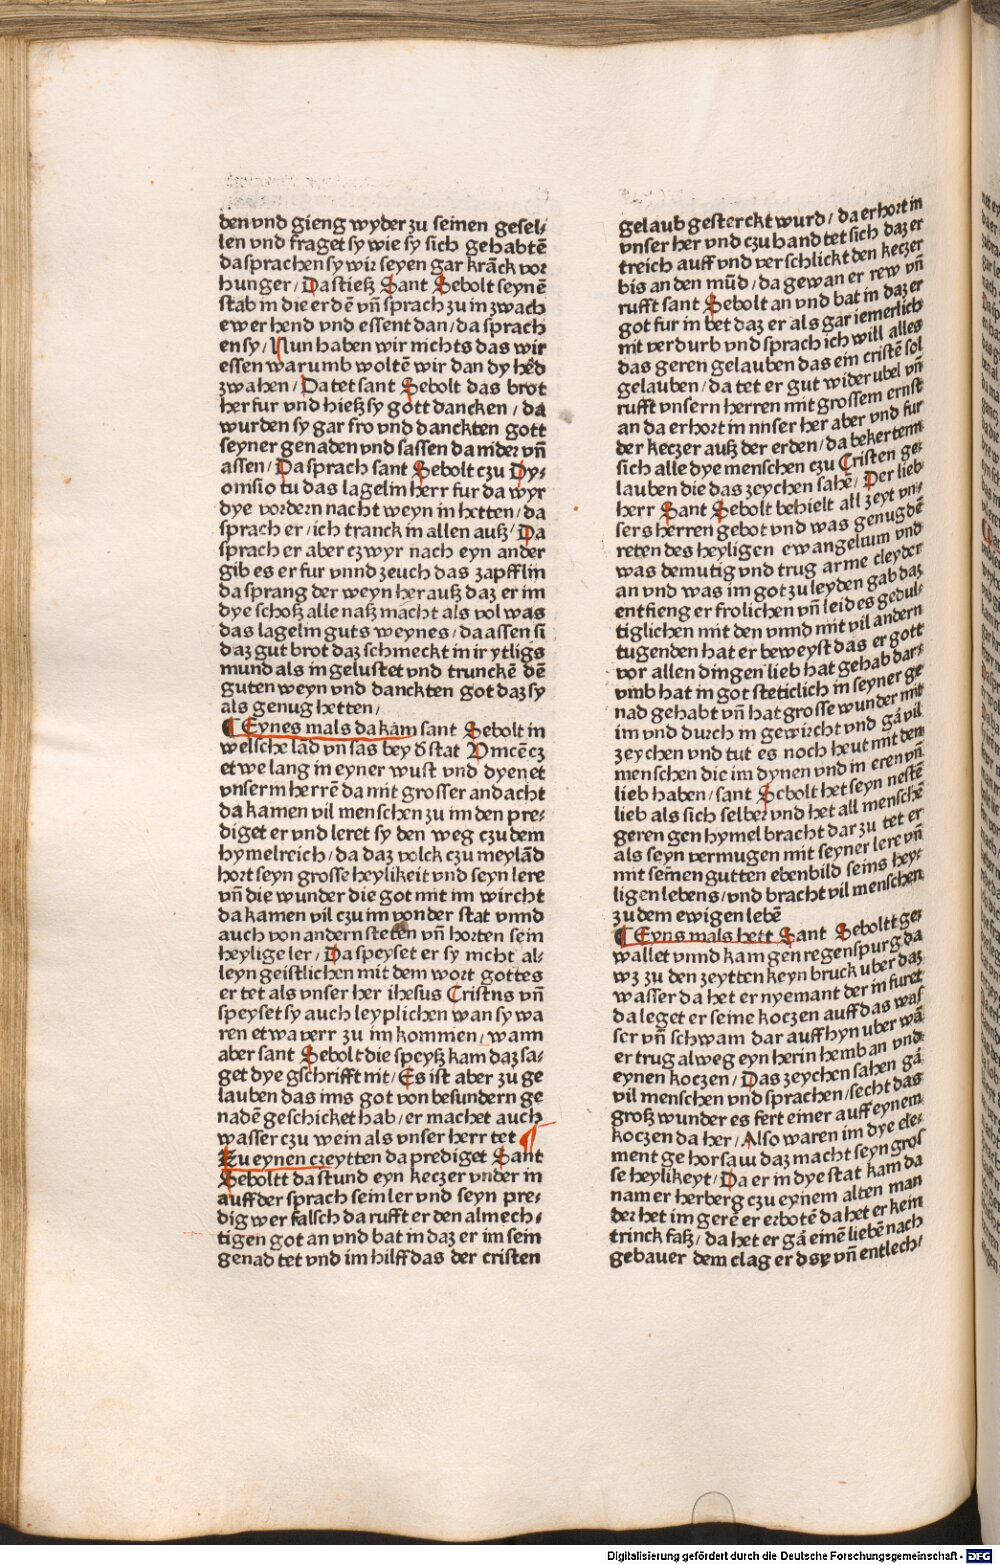 den vnd gieng wyder zu seinen gesel-
len vnd fraget sy wie sy sich gehabtē
da sprachen sy wir seyen gar krāck vor
hunger / Da stieß Sant Sebolt seynē
stab in die erdē vn̄ sprach zu in zwach
ewer hend vnd essent dan / da sprach
en sy / Nun haben wir nichts das wir
essen warumb woltē wir dan dy hēd
zwahen / Da tet sant Sebolt das brot
her fur vnd hieß sy gott dancken / da
wurden sy gar fro vnd danckten gott
seyner genaden vnd sassen da nider vn̄
assen / Da sprach sant Sebolt czu Dy-
onisio tu das lagelin herr fur da wyr
dye vordern nacht weyn in hetten / da
sprach er / ich tranck in allen auß / Da
sprach er aber czwyr nach eyn ander
gib es er fur vnnd zeuch das zapfflin
da sprang der weyn her auß daz er im
dye schoß alle naß macht als vol was
das lagelin guts weynes / da assen si
daz gut brot daz schmeckt in ir ytligs
mund als in gelustet vnd trunckē dē
guten weyn vnd danckten got daz sy
als genug hetten /
¶ Eynes mals da kam sant Sebolt in
welsche lād vn sas bey d̄ stat Vincēcz
etwe lang in eyner wust vnd dyenet
vnserm herrē da mit grosser andacht
da kamen vil menschen zu im den pre-
diget er vnd leret sy den weg czu dem
hymelreich / da daz volck czu meylād
hort seyn grosse heylikeit vnd seyn lere
vn̄ die wunder die got mit im wircht
da kamen vil czu im von der stat vnnd
auch von andern steten vn̄ horten sein
heylige ler / Da speyset er sy nicht al-
leyn geistlichen mit dem wort gottes
er tet als vnser her ihesus Cristns vn̄
speyset sy auch leyplichen wan sy wa
ren etwa verr zu im kommen / wann
aber sant Sebolt die speyß kam daz sa-
get dye gschrifft nit / Es ist aber zu ge
lauben das ims got von besundern ge
nadē geschicket hab / er machet auch
wasser czu wein als vnser herr tet ¶
Zu eynen czeytten da prediget Sant
Seboltt da stund eyn keczer vnder in
auff der sprach sein ler vnd seyn pre-
dig wer falsch da rufft er den almech-
tigen got an vnd bat in daz er im sein
genad tet vnd im hilff das der cristen
gelaub gesterckt wurd / da erhort in
vnser her vnd czu hand tet sich daz er
treich auff vnd verschlickt den keczer
bis an den mūd / da gewan er rew vn̄
rufft sant Sebolt an vnd bat in daz er
got fur in bet daz er als gar iemerlich
nit verdurb vnd sprach ich will alles
das geren gelauben das ein cristē sol
gelauben / da tet er gut wider ubel vn̄
rufft vnsern herren mit grossem ernst
an da erhort in nnser her aber vnd fur
der keczer auß der erden / da bekerten
sich alle dye menschen czu Cristen ge-
lauben die das zeychen sahē / Der lieb
herr Sant Sebolt behielt all zeyt vn-
sers herren gebot vnd was genug dē
reten des heyligen ewangelium vnd
was demutig vnd trug arme cleyder
an vnd was im got zu leyden gab daz
entfieng er frolichen vn̄ leid es gedul-
tiglichen mit den vnnd mit vil andern
tugenden hat er beweyst das er gott
vor allen dingen lieb hat gehab dar-
vmb hat in got steticlich in seyner ge
nad gehabt vn̄ hat grosse wunder mit
im vnd durch in gewircht vnd gā vil
zeychen vnd tut es noch heut mit den
menschen die im dynen vnd in eren vn̄
lieb haben / sant Sebolt het seyn nestē
lieb als sich selber vnd het all menschē
geren gen hymel bracht dar zu tet er
als seyn vermugen mit seyner lere vn̄
mit seinen gutten ebenbild seins hey-
ligen lebens / vnd bracht vil menschen
zu dem ewigen lebē
¶ Eyns mals hett Sant Seboltt ge-
wallet vnnd kam gen regenspurg da
wz zu den zeytten keyn bruck uber daz
wasser da het er nyemant der in furet
da leget er seine koczen auff das was
ser vn̄ schwam dar auff hyn uber wā
er trug alweg eyn herin hemb an vnd
eynen koczen / Das zeychen sahen gā
vil menschen vnd sprachen / secht das
groß wunder es fert einer auff eynem
koczen da her / Also waren im dye ele-
ment gehorsam daz macht seyn gros
se heylikeyt / Da er in dye stat kam da
nam er herberg czu eynem alten man
der het im gerē er erbotē da het er kein
trinck faß / da het er gā einē liebē nach
gebauer dem clag er dse vn̄ entlech /
Digitalisierung gefördert durch die Deutsche Forschungsgemeinschaft - DFG